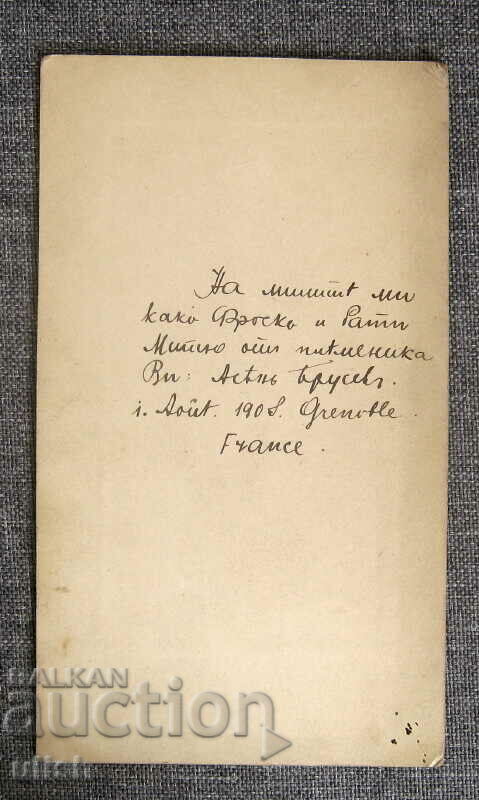 На милитѣ ми
како Фроско и бати
Митю отъ племеника
Ви: Асѣнь Брусевъ.
1. Août. 1908. Grenoble.
France.
BALKAN
auction